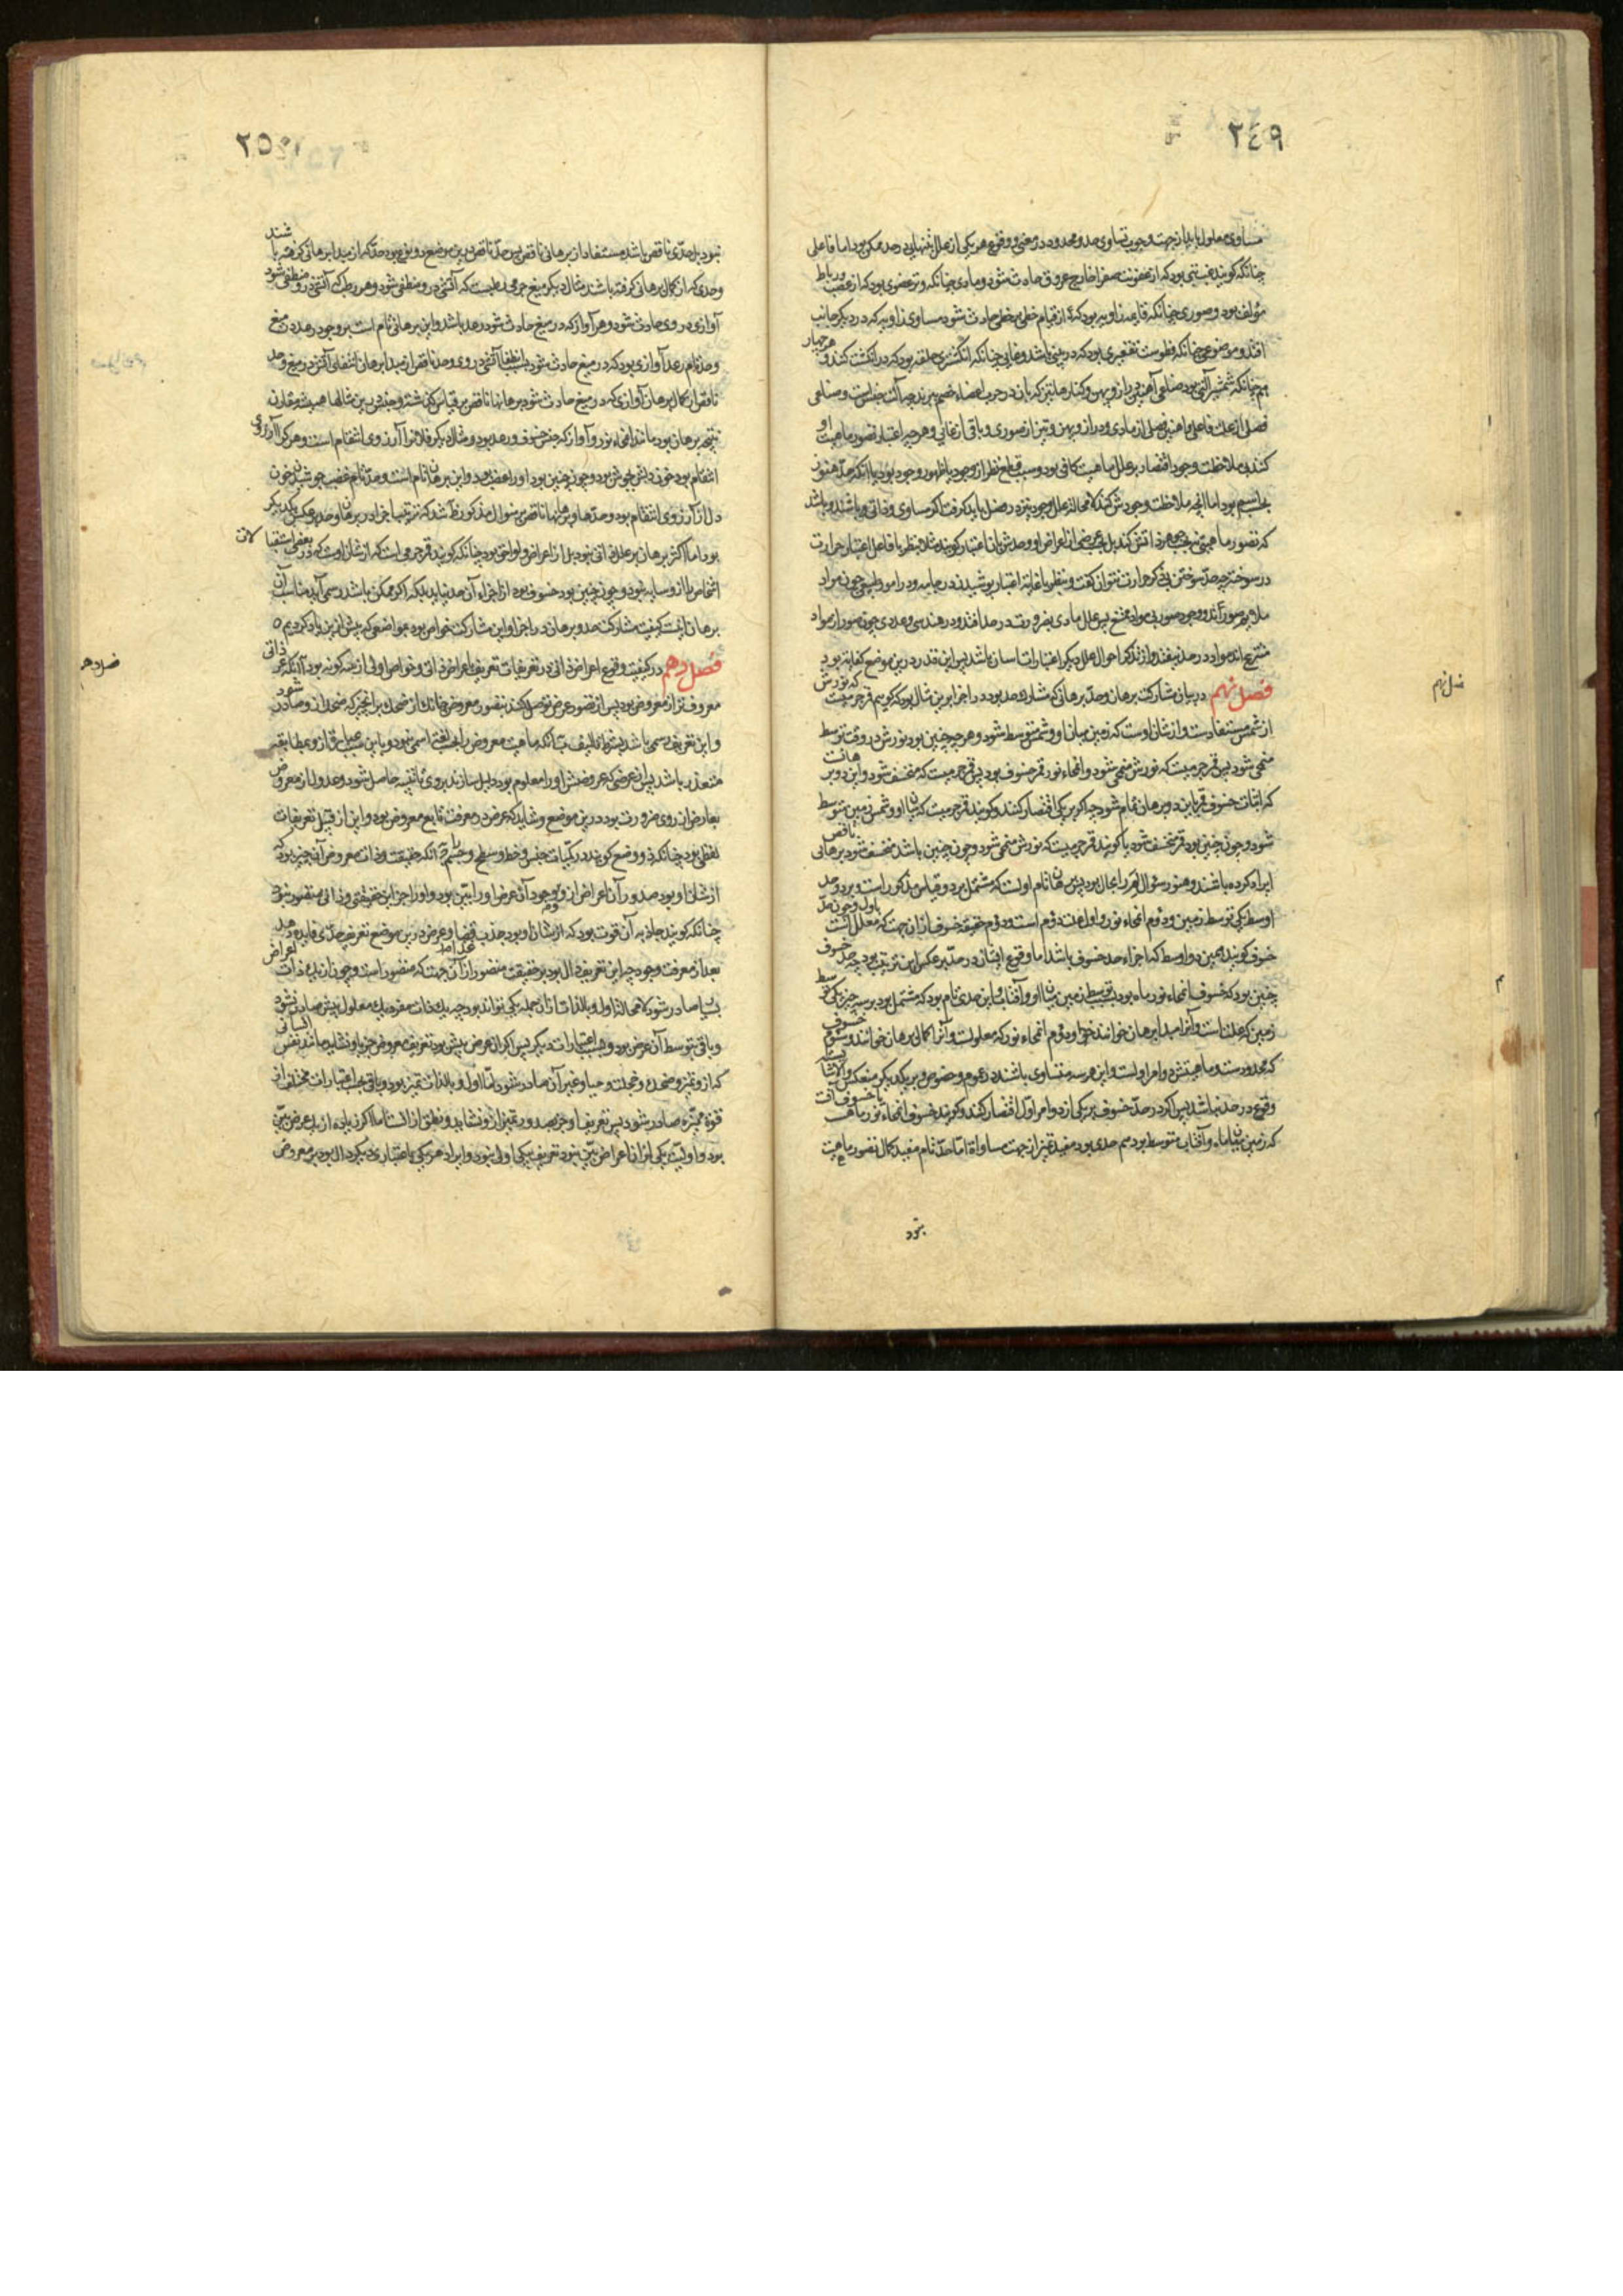 ٢٤٩
مساوی معلول یا نه از جهت وجوب تساوی حد و محدود در معنی و وقوع هر یکی از علل تنها در حد ممکن بود اما فاعلی
چنانکه گویند غب تبی بود که از عفونت صفرا خارج عروق حادث شود و مادی چنانکه وتر عضوی بود که از عصب و رباط
مؤلف بود و صوری چنانکه قایمه زاویه بود که از قیام خطی بر خطی حادث شود مساوی زاویه که در دیگر جانب
افتد و موضوعی چنانکه فطوست تقعیری بود که در بینی باشد و غایی چنانکه انگشتری حلقه بود که در انگشت کنند و هر چهار
بهم چنانکه شمشیر آلتی بود صناعی آهنین دراز و پهن و کنارها تیز که بان در حرب اعضاء خصم ببرند چه آلت جنس است و صناعی
فصلی از علت فاعلی و آهنین فصلی از مادی و دراز و پهن و تیز از صوری و باقی از غایی و هر چه اعتبار تصور ماهیت او
کنند بی ملاحظت وجود اقتصار بر علل ماهیت کافی بود و سبب قطع نظر از وجود یا ظهور وجود بود یا آنکه حد هنوز
بحسب اسم بود اما آنچه ملاحظت وجودش کنند لا محاله علل وجود نیز در فصل باید گرفت اگر مساوی و ذاتی و باشد
که تصور ماهیتی نه بحسب جوهر ذاتش کنند بل بحسب عرضی از اعراض او و حدش بان اعتبار گویند مثلا بنظر با فاعل اعتبار حرارت
در سوختن چه حد سوختن بی ذکر حرارت نتوان گفت و بنظر با غایت اعتبار پوشیدن در جامه و در امور طبیعی چون مواد
ملازم صور آند و وجود صور بی مواد ممتنع پس علل مادی بضرورت در حد افتد و در هندسی و عددی چون صور از مواد
منتزع اند مواد در حد نیفتد و از تذکر احوال علل دیگر اعتبارات آسان باشد پس این قدر درین موضع کفایه بود
فصل نهم در بیان مشارکت برهان و حد برهانی که مشارک حد بود در اجزا برین مثال بود که گوییم قمر جرمیست که نورش
از شمس مستفادست و از شان اوست که زمین میان او و شمس متوسط شود و هر چه چنین بود نورش در وقت توسط
منمحی شود پس قمر جرمیست که نورش منمحی شود و انمحاء نور قمر خسوف بود پس قمر جرمیست که منخسف شود و این دو برهانست
که اثبات خسوف قمر باین دو برهان تمام شود چه اگر بر یکی اقتصار کنند و گویند قمر جرمیست که میان او و شمس زمین متوسط
شود و چون چنین بود قمر منخسف شود یا گویند قمر جرمیست که نورش منمحی شود و چون چنین باشد منخسف شود برهانی ناقص
ایراد کرده باشند و هنوز سؤال لم را مجال بود پس برهان تام اولست که مشتمل بر دو قیاس مذکور است و بر دو حد
اوسط یکی توسط زمین و دوم انمحاء نور و اول علت دوم است و دوم حقیقة خسوف از آن جهت که معلل است باول و چون حد
خسوف گویند همین دو اوسط که اجزاء حد خسوف باشد اما وقوع ایشان در حد بر عکس این ترتیب بود چه حد خسوف
چنین بود که خسوف انمحاء نور ماه بود بتوسط زمین میان او و آفتاب و این حدی تام بود که مشتمل بود بر سه چیز یکی توسط
زمین که علت است و آنرا مبدا برهان خوانند و دوم انمحاء نور که معلولست و آنرا کمال برهان خوانند و سوم خسوف
که محدودست و ماهیتش دو امر اولست و این هر سه متساوی باشند در عموم و خصوص و بر یکدیگر منعکس و الا شایسته
وقوع در حد نباشد پس اگر در حد خسوف بر یکی از دو امر اول اقتصار کنند و گویند خسوف انمحاء نور ماهست یا خسوف آنست
که زمین میان ماه و آفتاب متوسط بود هم حدی بود مفید تمیز از جهت مساواة اما حد تام مفید کمال تصور ماهیت
نبود
فصل نهم
٢٥٠
نبود بل حدی ناقص باشد مستفاد از برهانی ناقص پس حد ناقص درین موضع دو نوع بود حدی که از مبدا برهانی گرفته باشند
وحدی که از کمال برهانی گرفته باشند مثال دیگر میغ جرمی رطبست که آتشی در و منطفی شود و هر رطب که آتشی در و منطفی شود
آوازی در وی حادث شود و هر آواز که در میغ حادث شود رعد باشد و این برهانی تام است بر وجود رعد در میغ
و حد تام رعد آوازی بود که در میغ حادث شود بسبب انطفاء آتشی در وی و حد ناقص از مبدا برهان انطفای آتش در میغ و حد
ناقص از کمال برهان آوازی که در میغ حادث شود و برهانها ناقص بر قیاس گذشته و جنس درین مثالها همیشه مقارن
نتیجه برهان بود مانند انمحاء نور و آواز که جنس خسوف و رعد بود و مثال دیگر فلان را آرزوی انتقام است و هر کرا آرزوی
انتقام بود خون دلش بجوش بود و چون چنین بود او را غضب بود و این برهان تام است و حد تام غضب جوشیدن خون
دل از آرزوی انتقام بود و حدها و برهانها ناقص بر منوال مذکور ظاهر شد که ترتیب اجزا در برهان و حد بر عکس یکدیگر
بود اما اکثر برهان بر علل ذاتی نبود بل از اعراض و لواحق بود چنانکه گویند قمر جرمی است که از شان اوست که در بعضی استقبالات
اشخاص را از و سایه نبود و چون چنین بود خسوف بود از اجزاء آن حد نیاید بلکه اگر ممکن باشد رسمی آید مناسب آن
برهان اینست کیفیت مشارکت حد و برهان در اجزا و این مشارکت خواص بود بمواضعی که پیش ازین یاد کردیم ٥
فصل دهم در کیفیت وقوع اعراض ذاتی در تعریفات تعریف باعراض ذاتی و خواص اولی از سه گونه بود ا آنکه عرض ذاتی
معروف تر از معروض بود پس از تصور عرض توصل کنند بتصور معروض چنانک از ضحک بر آنچیز که ضحک از و صادر شود
و این تعریف رسمی باشد
متعذر باشد پس از عرضی که عروضش او را معلوم بود دلیل سازند بر وی تا تنبیه حاصل شود و عدول از معروض
بعارض از روی ضرورت بود درین موضع و شاید که عرض در معرفت تابع معروض بود و این از قبیل تعریفات
لفظی بود چنانکه ذو وضع گویند در کمیات جنس خط و سطح و جسم را آنکه حقیقت و ذات معروض آن چیز بود که
از شان او بود صدور آن اعراض از و و وجود آن عرض او را بین بود و او را جز این حقیقتی و ذاتی متصور نبود
چنانکه گویند جاذبه آن قوت بود که از شان او بود جذب غذا و عرض درین موضع تعریف حدی فایده دهد
بعد از معرفت وجود چه این تعریف دال بود بر حقیقت متصور از آن جهت که متصور است و چون از یک ذات اعراض
بسیار صادر شود لا محاله اول و بالذات از آن جمله یکی تواند بود چه یک ذات مفرد یک معلول بیش صادر نشود
و باقی بتوسط آن عرض بود و بحسب اعتبارات دیگر پس اگر آن عرض بین بود تعریف معروض جز باو نشاید مانند نفس انسانی
که از و تمیز و ضحک و خجلت و حیا و غیر آن صادر شود اما اول و بالذات تمیز بود و باقی بحسب اعتبارات مختلف از
قوة ممیزه صادر شود پس تعریف او جز بصدور تمیز از و نشاید و نطق از آنست اما اگر زیادت از یک عرض بین
بود و اولیت یکی از آن اعراض بین نبود تعریف بیکی اولی نبود و ایراد هر یکی باعتباری دیگر دال بود بر معروض
فصل دهم